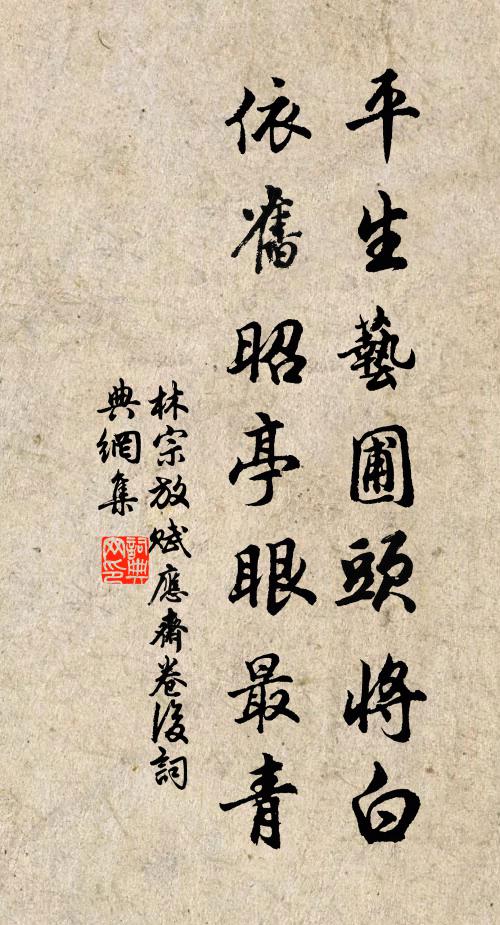 平生藝圃頭將白
依舊昭亭眼最青
林宗放賦應齋卷後詞
典網集
詞典網印